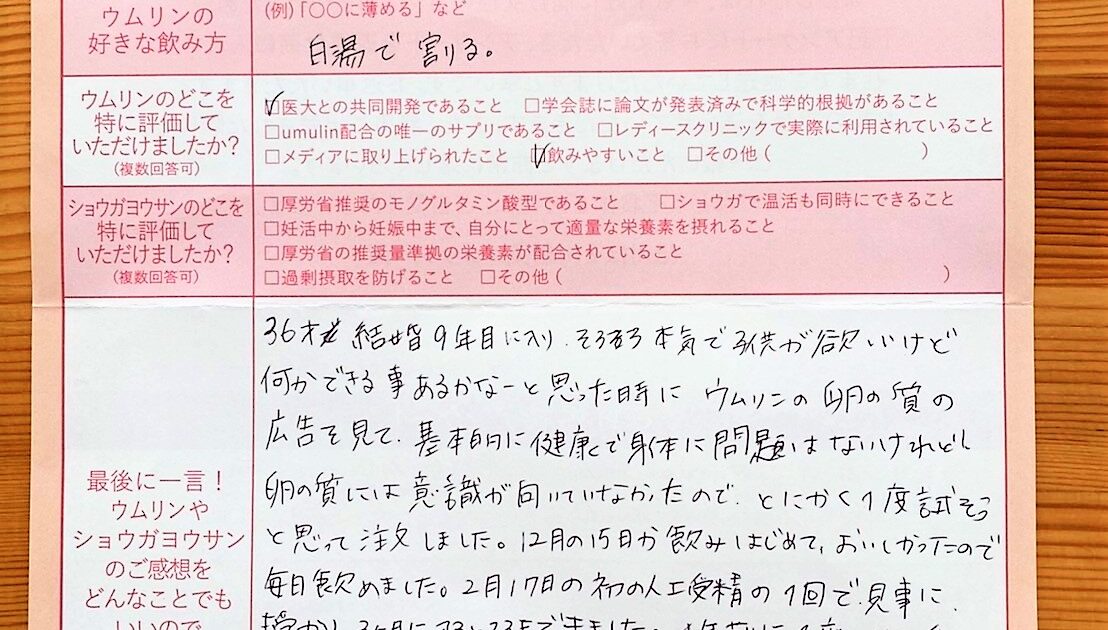 ウムリンの
好きな飲み方
(例)「〇〇に薄める」など
白湯で割る。
ウムリンのどこを
特に評価して
いただけましたか?
(複数回答可)
☑医大との共同開発であること □学会誌に論文が発表済みで科学的根拠があること
□umulin配合の唯一のサプリであること □レディースクリニックで実際に利用されていること
□メディアに取り上げられたこと ☑飲みやすいこと □その他 ( )
ショウガヨウサンのどこを
特に評価して
いただけましたか?
(複数回答可)
□厚労省推奨のモノグルタミン酸型であること □ショウガで温活も同時にできること
□妊活中から妊娠中まで、自分にとって適量な栄養素を摂れること
□厚労省の推奨量準拠の栄養素が配合されていること
□過剰摂取を防げること □その他 ( )
最後に一言!
ウムリンや
ショウガヨウサン
のご感想を
どんなことでも
いいので
36才 結婚9年目に入り、そろそろ本気で子供が欲しいけど
何かできる事あるかなーと思った時に ウムリンの卵の質の
広告を見て、基本的に健康で身体に問題はないけれども
卵の質には意識が向いていなかったので、とにかく1度試そう
と思って注文しました。12月の15日から飲みはじめて、おいしかったので
毎日飲めました。2月17日の初の人工受精の1回で見事に、